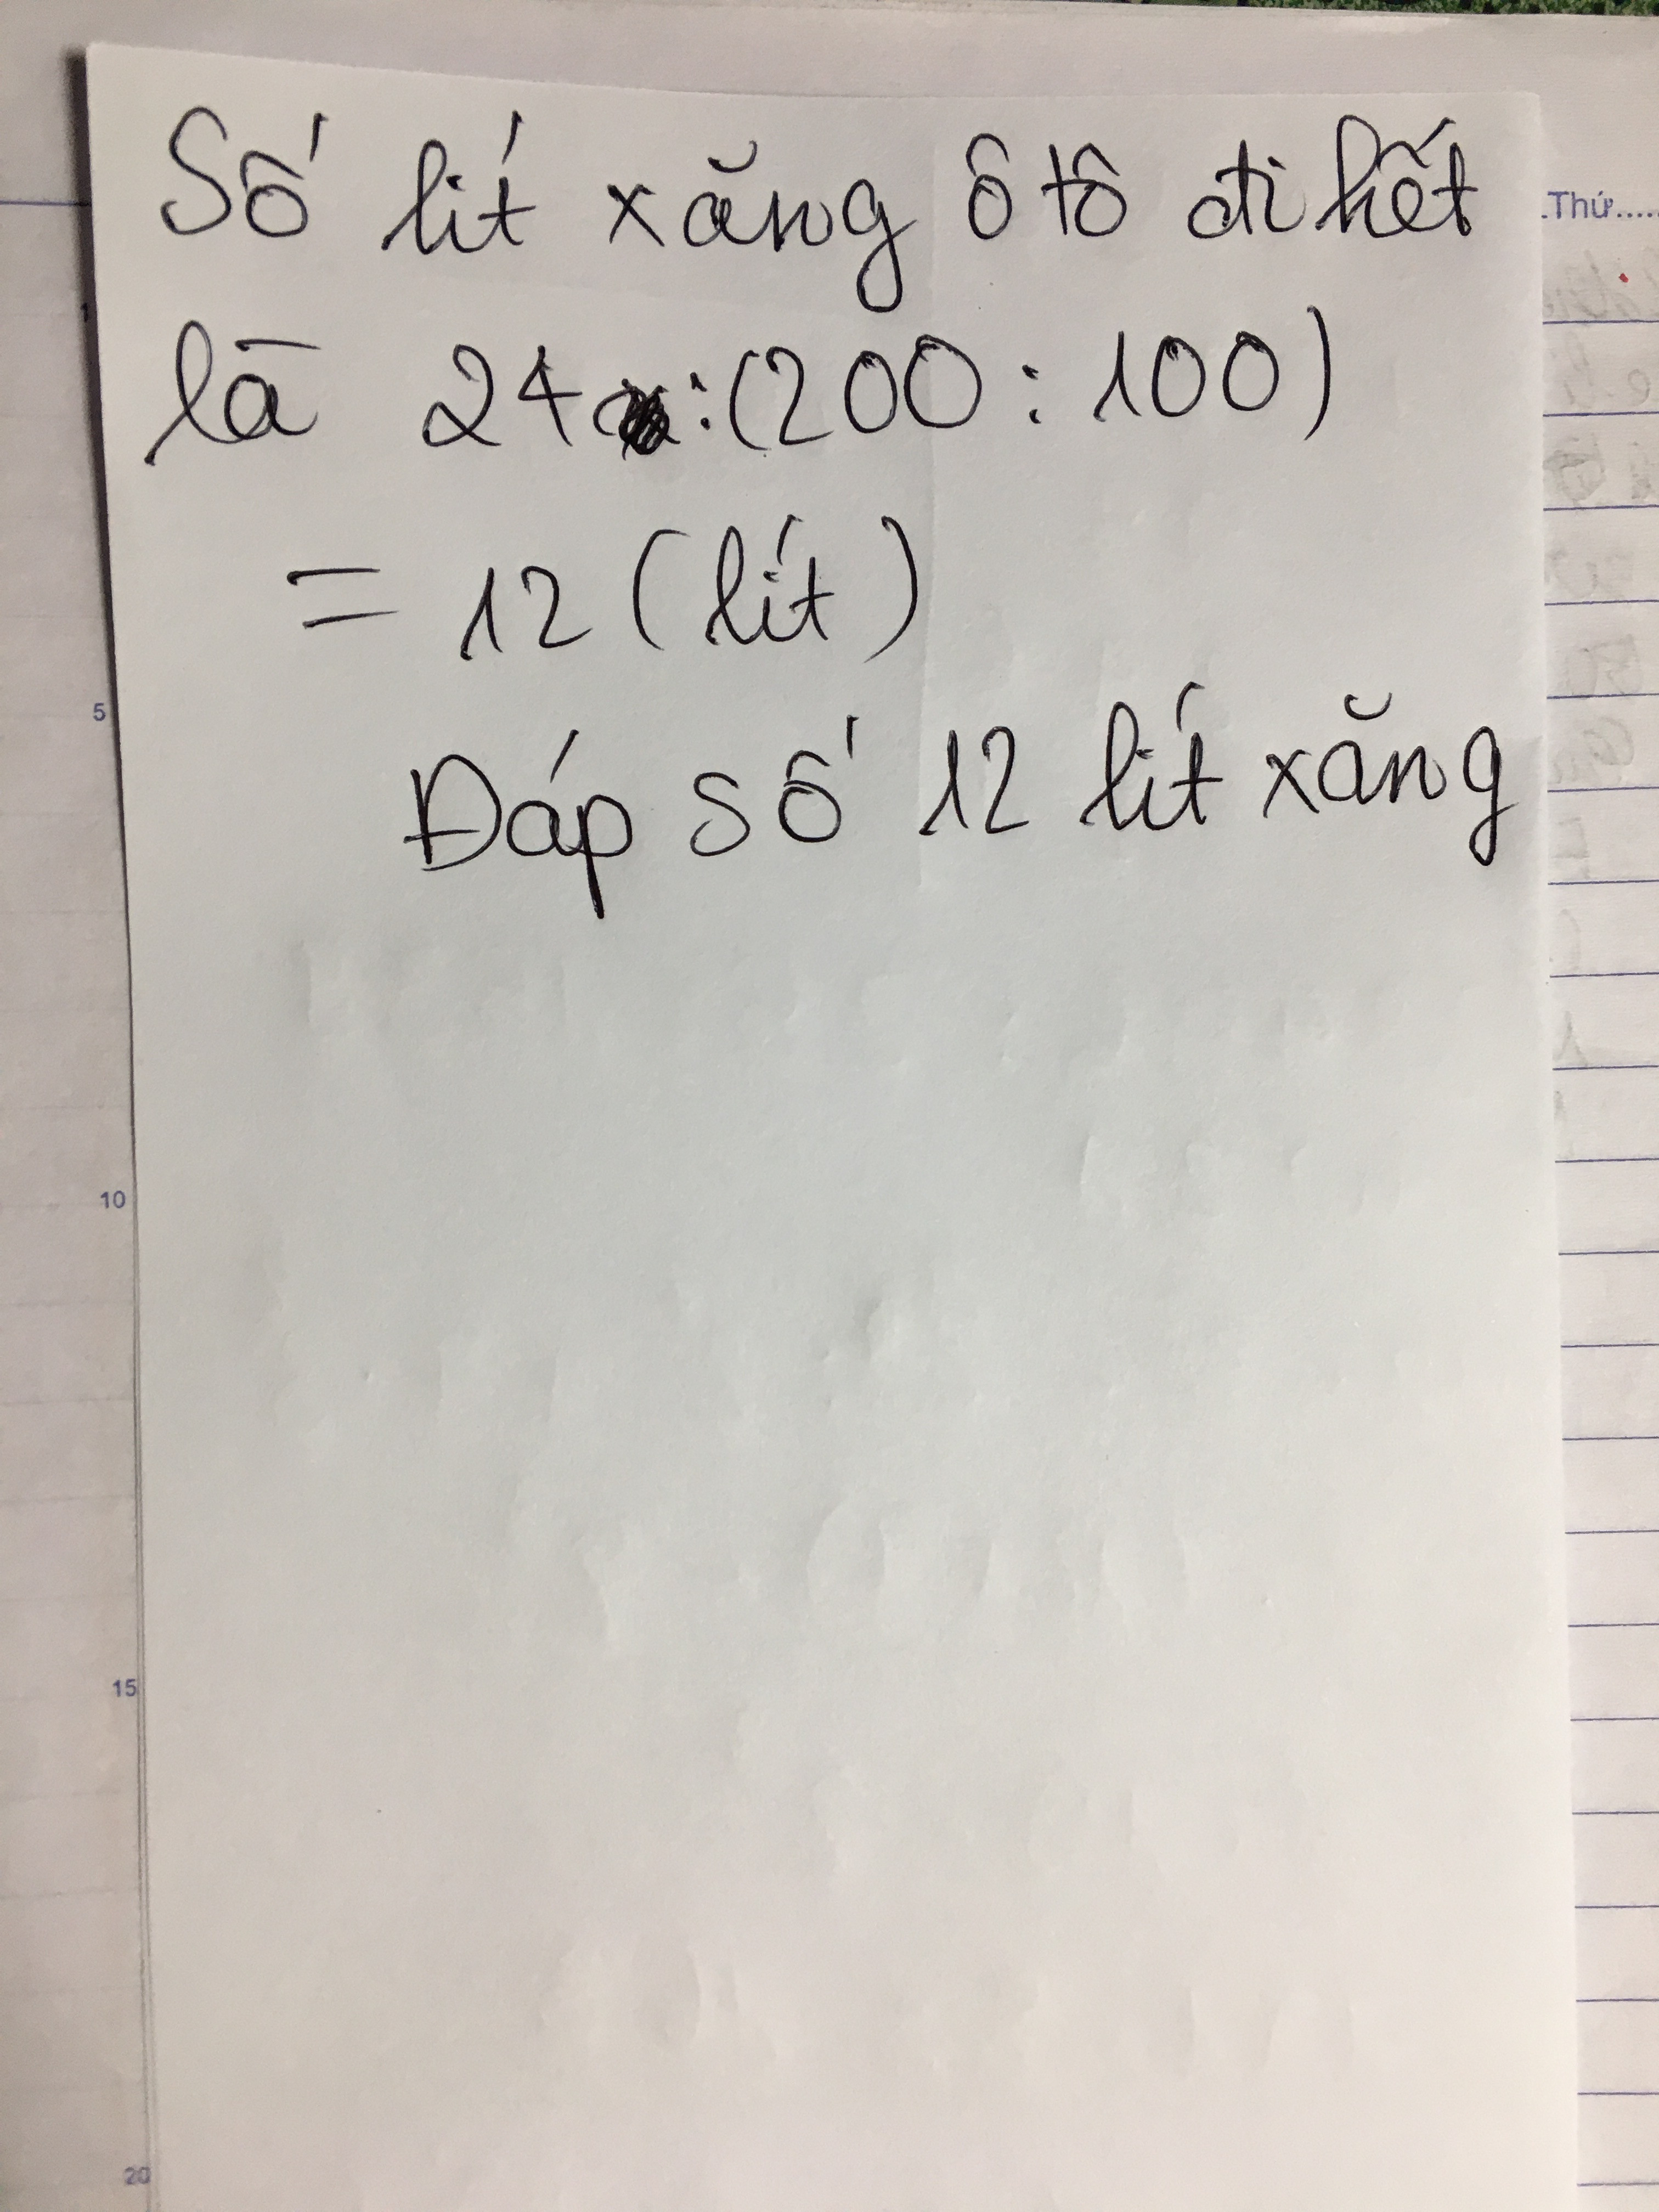 Số lít xăng ô tô đi hết
là 24 : (200 : 100)
= 12 (lít)
Đáp số 12 lít xăng
Thứ.....
1
5
10
15
20